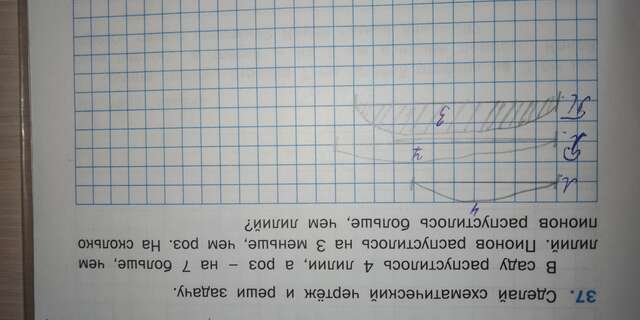 37. Сделай схематический чертёж и реши задачу.
В саду распустилось 4 лилии, а роз – на 7 больше, чем
лилий. Пионов распустилось на 3 меньше, чем роз. На сколько
пионов распустилось больше, чем лилий?
4
Л
Р. 7
П. 3